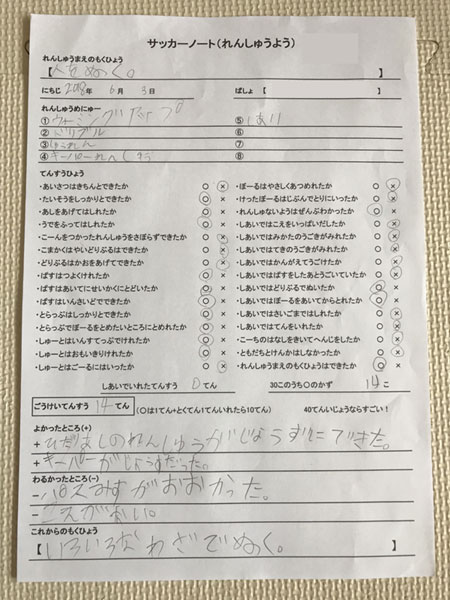 サッカーノート(れんしゅうよう)
れんしゅうまえのもくひょう
【人をぬく。】
にちじ 2018年 6月 3日 ばしょ【 】
れんしゅうめにゅー
①ウォーミングアップ ⑤しあい
②ドリブル ⑥
③ ⑦
④キーパー ⑧
てんすうひょう
・あいさつはきちんとできたか ○ × ・ぼーるはやさしくあつめれたか ○ ×
・たいそうをしっかりとできたか ○ × ・けったぼーるはじぶんでとりにいったか ○ ×
・あしをあげてはしれたか ○ × ・れんしゅうないようはぜんぶわかったか ○ ×
・うでをふってはしれたか ○ × ・しあいではこえをいっぱいだしたか ○ ×
・こーんをつかったれんしゅうをさぼらずできたか ○ × ・しあいではみかたのうごきがみれたか ○ ×
・こまかくはやいどりぶるはできたか ○ × ・しあいではてきのうごきがみれたか ○ ×
・どりぶるはかおをあげてできたか ○ × ・しあいではかんがえてうごけたか ○ ×
・ぱすはつよくけれたか ○ × ・しあいではぱすをしたあとうごいていたか ○ ×
・ぱすはあいてにせいかくにとどいたか ○ × ・しあいではどりぶるでぬいたか ○ ×
・ぱすはいんさいどでできたか ○ × ・しあいではぼーるをあいてからとれたか ○ ×
・とらっぷはしっかりとできたか ○ × ・しあいではさいごまではしれたか ○ ×
・とらっぷでぼーるをとめたいところにとめれたか ○ × ・しあいではてんをいれたか ○ ×
・しゅーとはいんすてっぷでけれたか ○ × ・こーちのはなしをきいてへんじをしたか ○ ×
・しゅーとはおもいきりけれたか ○ × ・ともだちとけんかはしなかったか ○ ×
・しゅーとはごーるにはいったか ○ × ・れんしゅうまえのもくひょうはできたか ○ ×
しあいでいれたてんすう 0てん 30このうち○のかず 14こ
ごうけいてんすう 14てん (○は1てん+とくてん1てんいれたら10てん) 40てんいじょうならすごい!
よかったところ(+)
+ひだりあしのれんしゅうがじょうずにできた。
+キーパーがじょうずだった。
わるかったところ(-)
-パスみすがおおかった。
-こえがない。
これからのもくひょう
【いろいろなわざでぬく。】